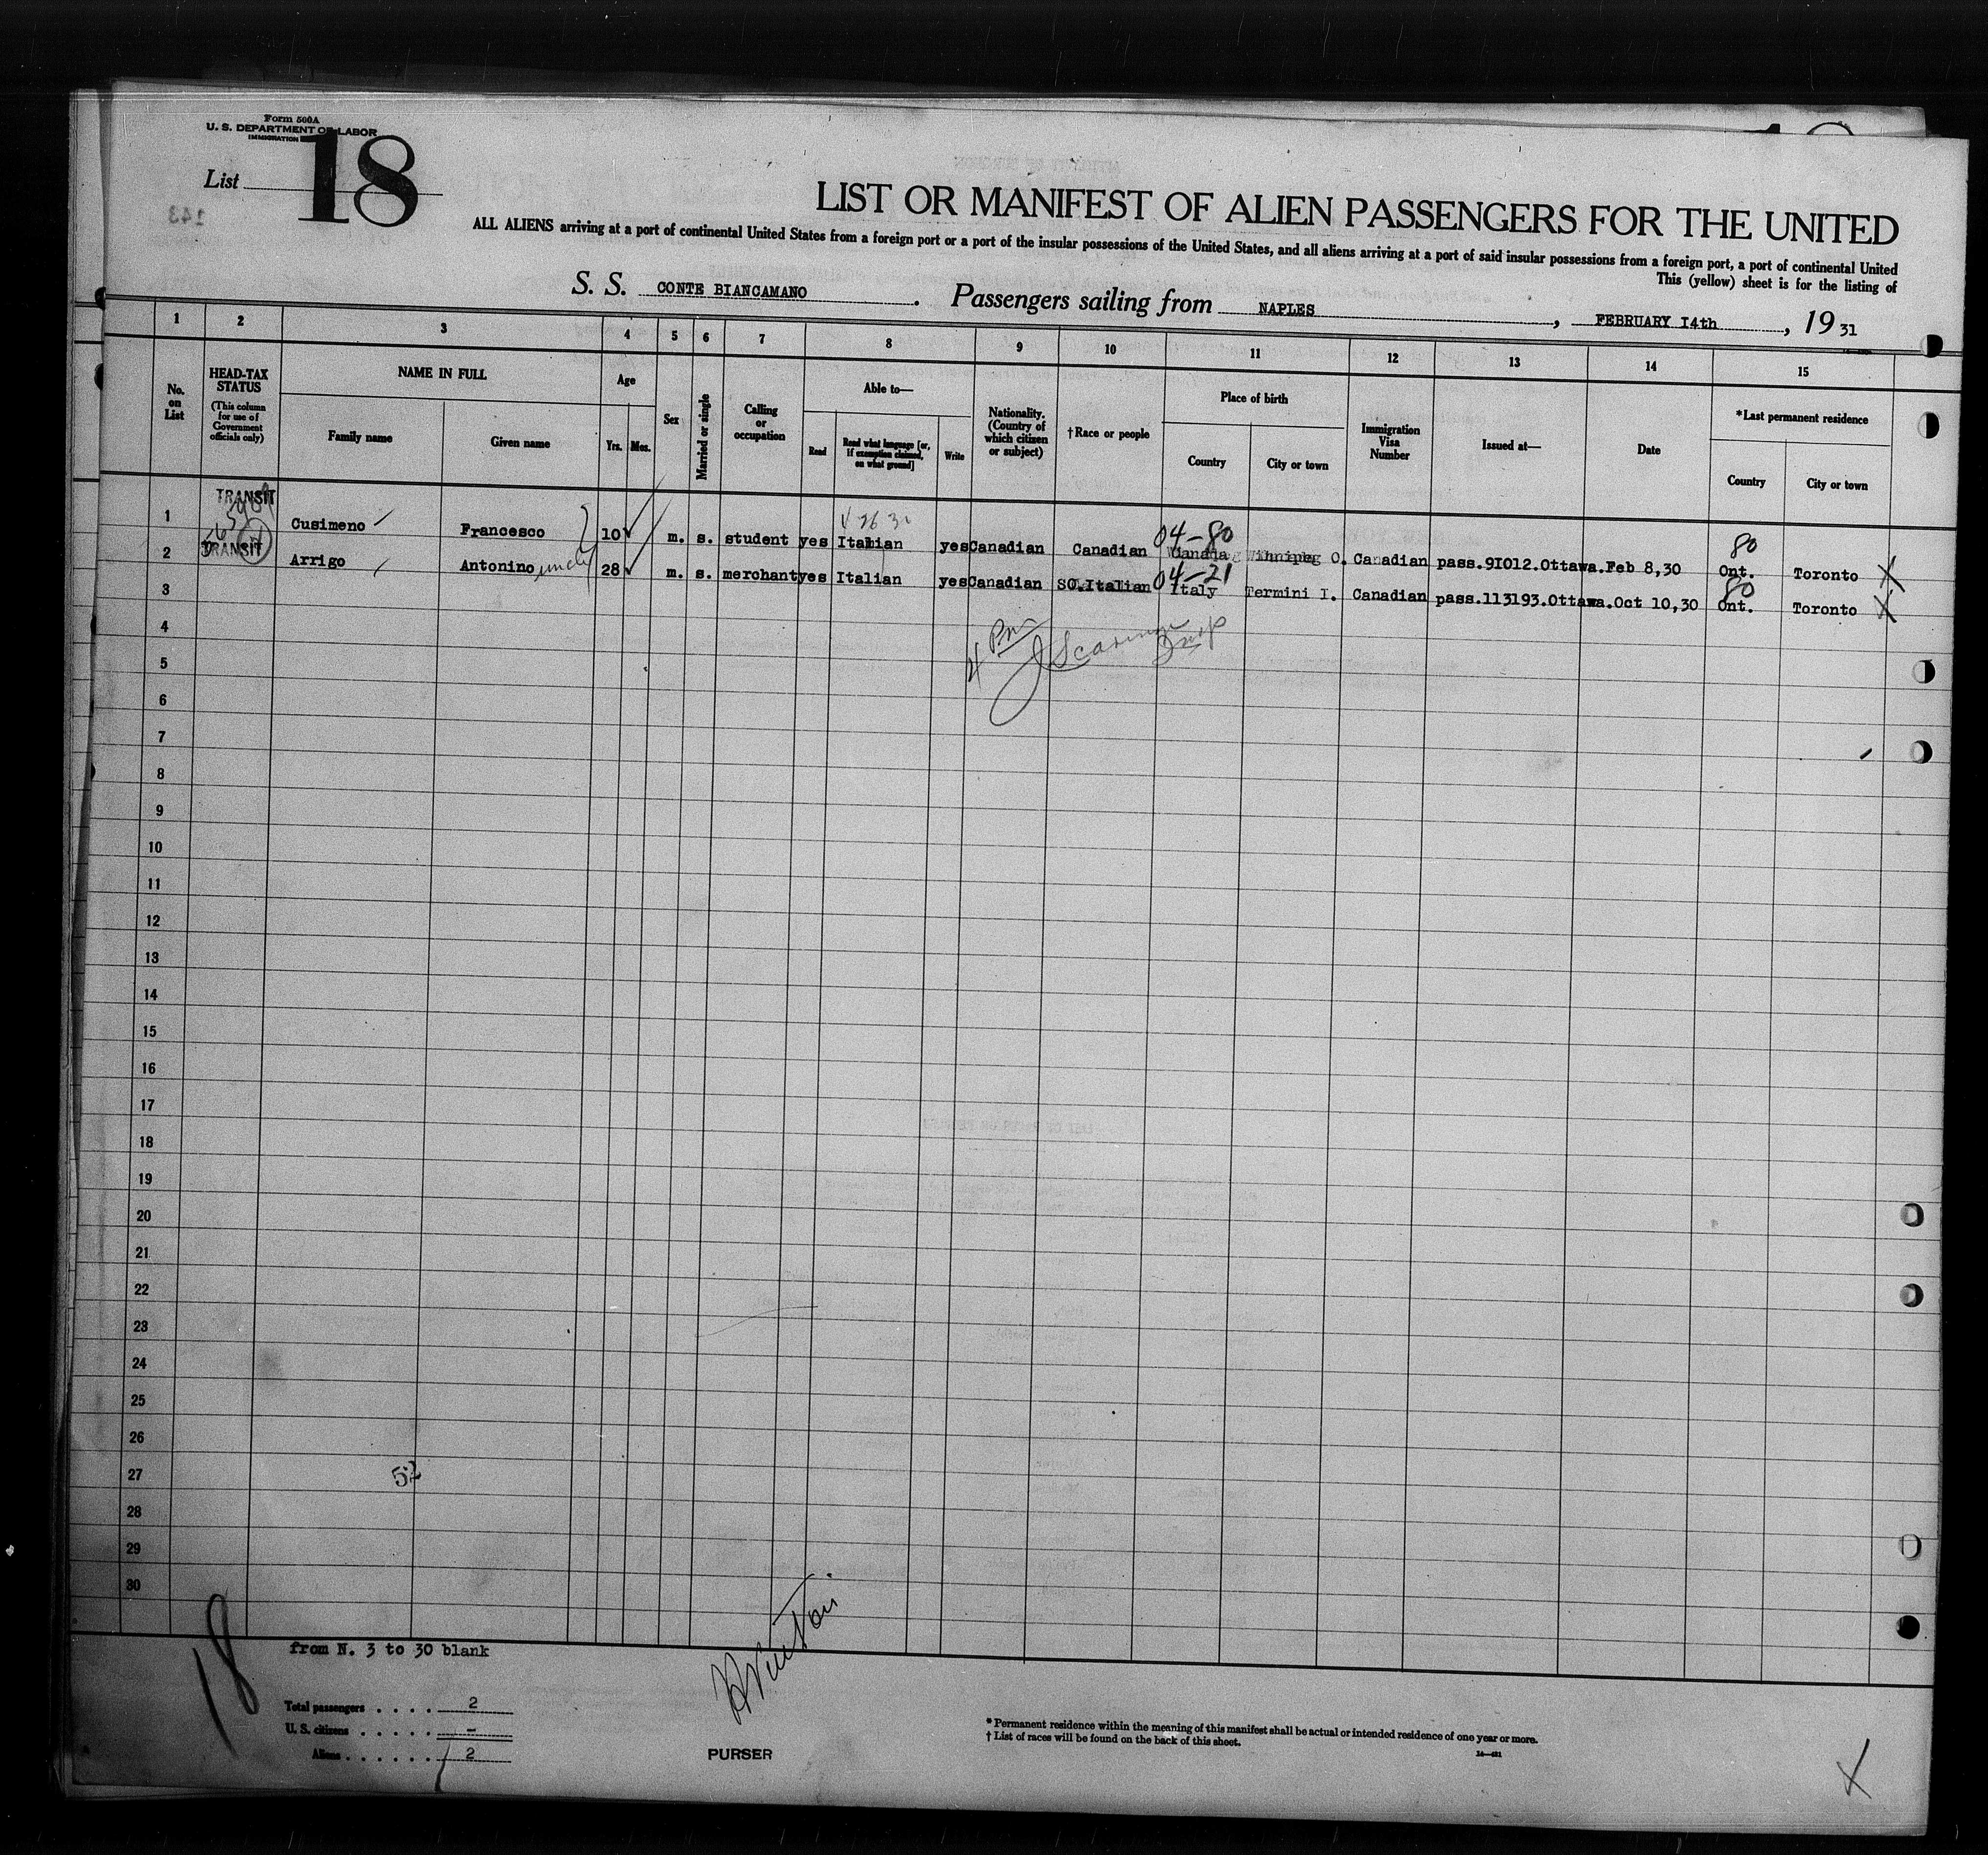 Form 500A
U. S. DEPARTMENT OF LABOR
IMMIGRATION
List 18
143
LIST OR MANIFEST OF ALIEN PASSENGERS FOR THE UNITED
ALL ALIENS arriving at a port of continental United States from a foreign port or a port of the insular possessions of the United States, and all aliens arriving at a port of said insular possessions from a foreign port, a port of continental United
This (yellow) sheet is for the listing of
S. S. CONTE BIANCAMANO. Passengers sailing from NAPLES, FEBRUARY 14th, 1931
1 2 3 4 5 6 7 8 9 10 11 12 13 14 15
No. on List
HEAD-TAX STATUS
(This column for use of Government officials only)
NAME IN FULL
Family name Given name
Age
Yrs. Mos.
Sex
Married or single
Calling or occupation
Able to—
Read
Read what language [or, if exemption claimed, on what ground]
Write
Nationality. (Country of which citizen or subject)
†Race or people
Place of birth
Country City or town
Immigration Visa Number
Issued at—
Date
*Last permanent residence
Country City or town
04-80 80
1 TRANSIT Cusimeno Francesco 10 m. s. student yes Italian yes Canadian Canadian Canada Winnipeg C. Canadian pass.91012.Ottawa.Feb 8,30 Ont. Toronto X
04-21 80
2 TRANSIT Arrigo Antonino uncle 28 m. s. merchant yes Italian yes Canadian SO.Italian Italy Termini I. Canadian pass.113193.Ottawa.Oct 10,30 Ont. Toronto X
3
4
5
6
7
8
9
10
11
12
13
14
15
16
17
18
19
20
21
22
23
24
25
26
27
52
28
29
30
18
from N. 3 to 30 blank
Total passengers . . . . 2
U. S. citizens . . . . . -
Aliens . . . . . . 2
PURSER
* Permanent residence within the meaning of this manifest shall be actual or intended residence of one year or more.
† List of races will be found on the back of this sheet.
X